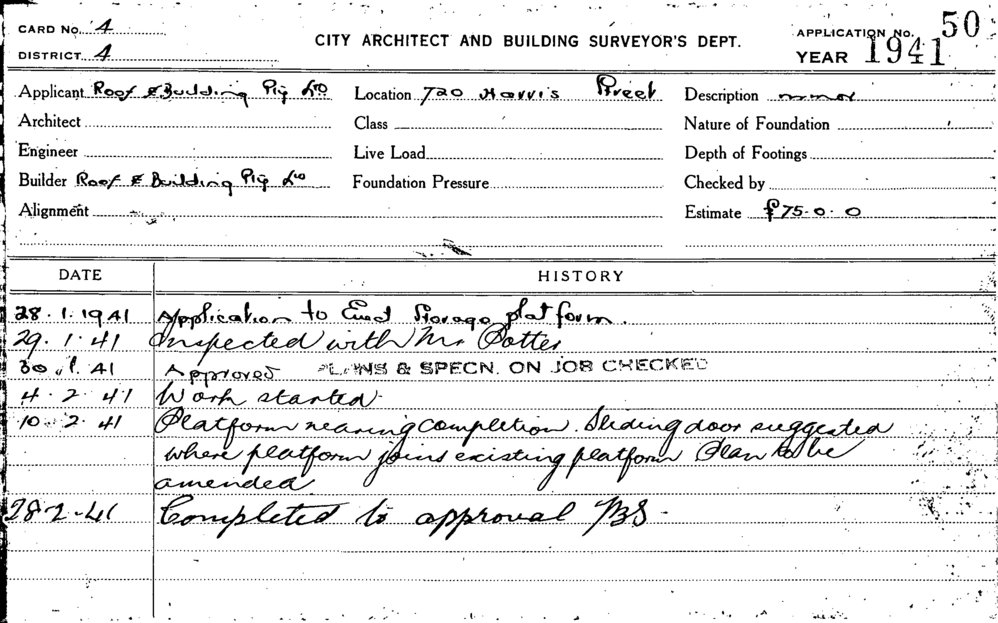 CARD NO. 4
DISTRICT 4
CITY ARCHITECT AND BUILDING SURVEYOR'S DEPT.
APPLICATION NO. 50
YEAR 1941
Applicant Roof & Building Pty Ltd Location 720 Harris Street Description minor
Architect Class Nature of Foundation
Engineer Live Load Depth of Footings
Builder Roof & Building Pty Ltd Foundation Pressure Checked by
Alignment Estimate £75.0.0
DATE HISTORY
28.1.1941 Application to Erect Storage platform.
29.1.41 Inspected with Mr Potter
30.1.41 Approved PLANS & SPECN. ON JOB CHECKED
4.2.41 Work started.
10.2.41 Platform nearing completion. Sliding door suggested
where platform joins existing platform Plan to be
amended
28.2.41 Completed to approval